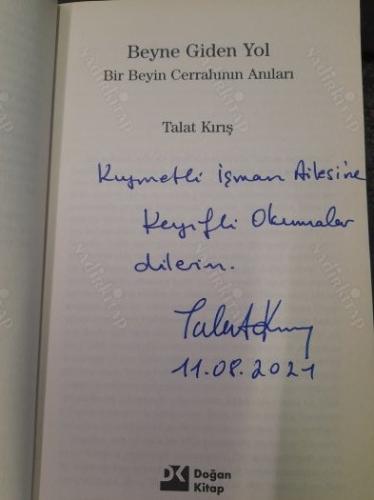 Beyne Giden Yol
Bir Beyin Cerrahının Anıları
Talat Kırış
Kıymetli İşman Ailesine
Keyifli Okumalar
dilerim.
Talat Kırış
11.08.2021
DK
Doğan
Kitap